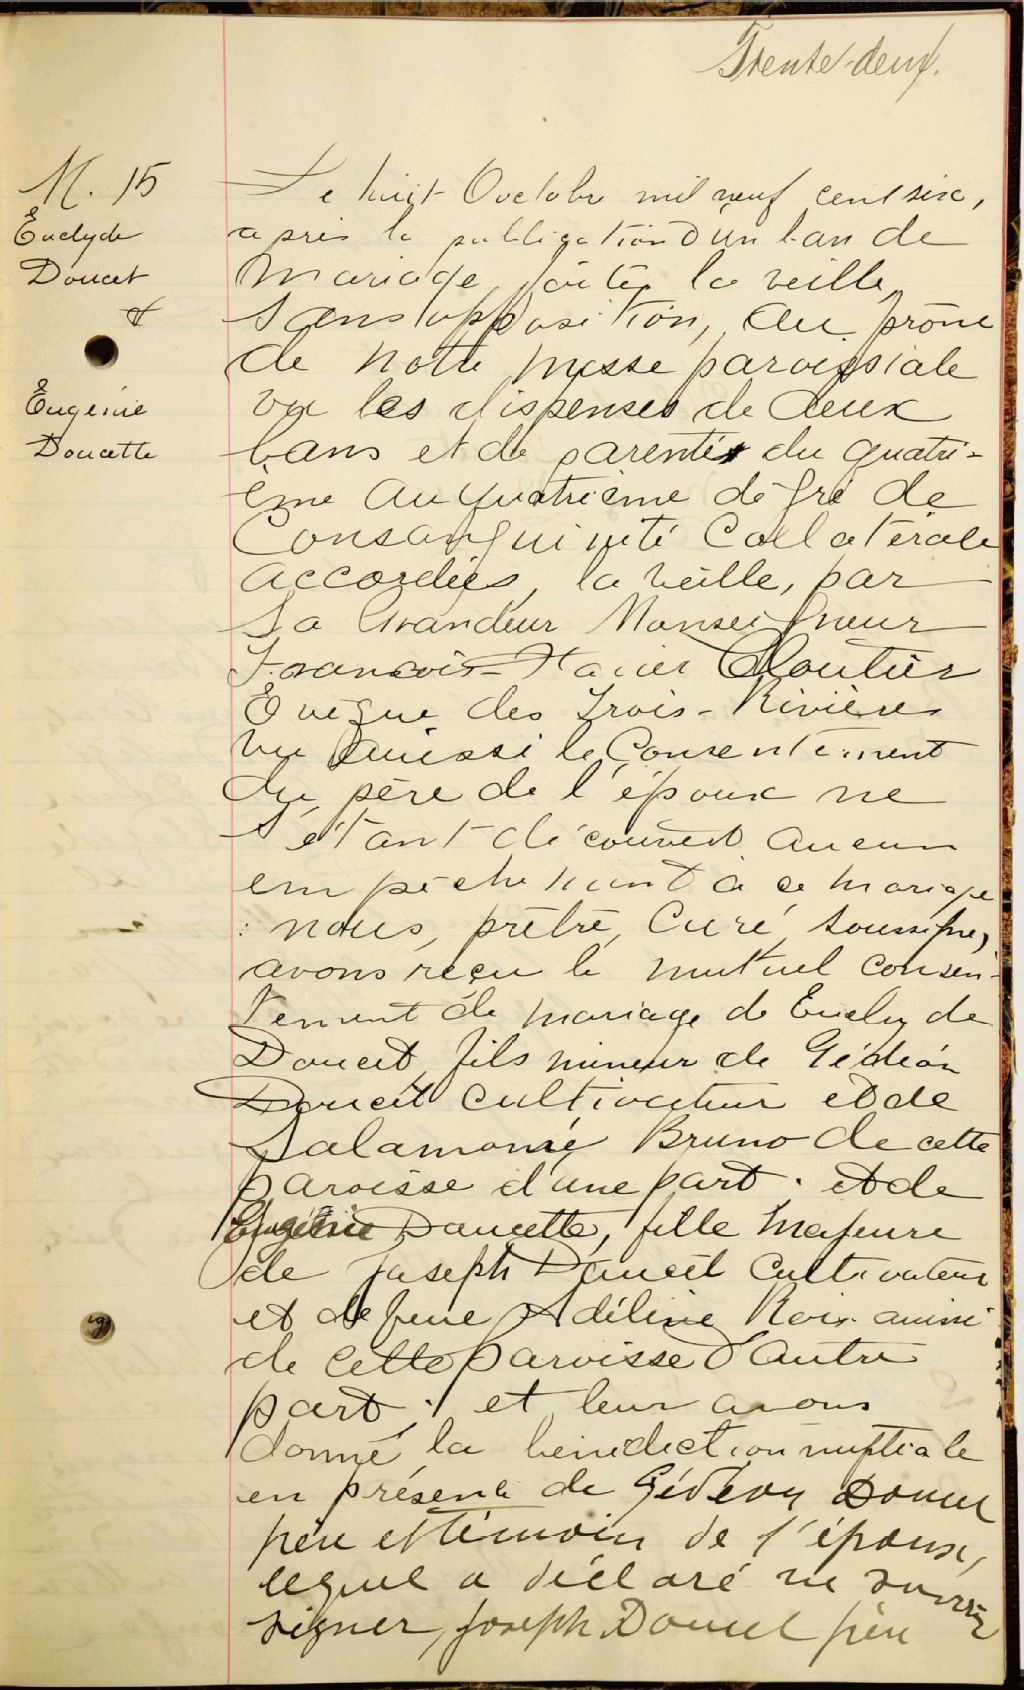 Trente-deux.
M. 15
Euclyde
Doucet
&
Eugénie
Doucette
Le huit Octobre mil neuf cent six,
après la publication d'un ban de
mariage faite la veille,
sans opposition, au prône
de notre messe paroissiale
vu les dispenses de deux
bans et de parenté du quatri-
ème au quatrième dégré de
Consanguinité Collatérale
accordées, la veille, par
Sa Grandeur Monseigneur
François-Xavier Cloutier
Évêque des Trois-Rivières
vu aussi le Consentement
du père de l'époux ne
s'étant découvert aucun
empêchement à ce mariage
: nous, prêtre, Curé, soussigné,
avons reçu le mutuel consen-
tement de mariage de Euclyde
Doucet, fils mineur de Gédéon
Doucet cultivateur et de
Salamomé Bruno de cette
paroisse d'une part. et de
Eugénie Doucette, fille majeure
de Joseph Doucet Cultivateur
et de feue Adéline Roix aussi
de cette paroisse d'autre
part; et leur avons
donné la bénédiction nuptiale
en présence de Gédéon Doucet
père et témoin de l'époux,
lequel a déclaré ne savoir
signer, Joseph Doucet père